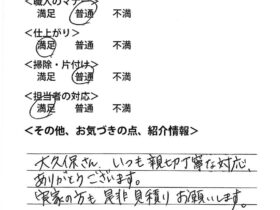 <職人のマナー>
満足 普通 不満
<仕上がり>
満足 普通 不満
<掃除・片付け>
満足 普通 不満
<担当者の対応>
満足 普通 不満
<その他、お気づきの点、紹介情報>
大久保さん、いつも親切丁寧な対応、
ありがとうございます。
実家の方も是非見積りお願いします。